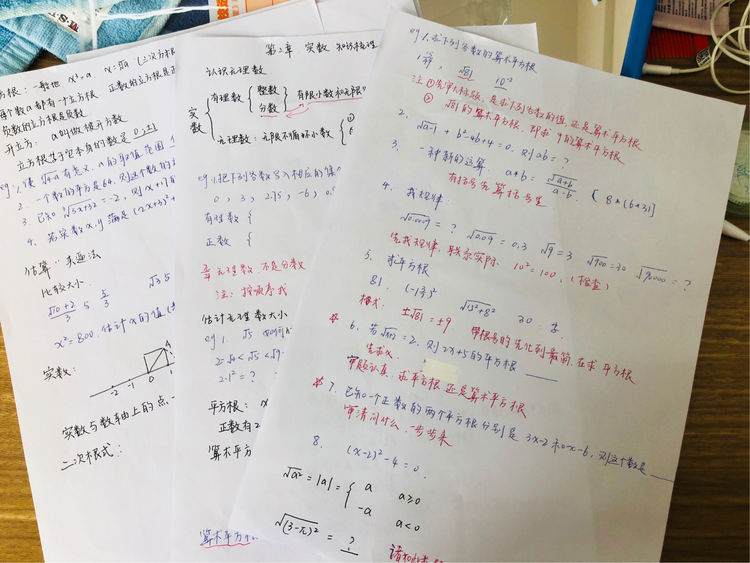 方根：一般地 x³=a
每个数a都有一个立方根 正数的立方根是正
负数的立方根是负数
开立方： a叫做被开方数
立方根等于它本身的数是 0, ±1
有意义, a的取值范围
2. 一个数的平方是64, 则这个数的
3. 已知 ∛5x+32 = -2, 则 x+17
4. 若实数x,y满足 (2x+3)²+
估算：夹逼法
比较大小
x²=800, 估计x的值
实数：
-2 -1 0 1
A
实数与数轴上的点一
二次根式：
第2章 实数 知识梳理
认识无理数
实数
有理数
整数
分数
有限小数和无限
无理数：无限不循环小数
eg 1. 把下列各数写入相应的集
0, 3, 2.75, -6, 0.
有理数 {
正数 {
无理数, 不是分数
注：按顺序找
估计无理数大小
eg 1. √5
2=√4 < √5 < √9
2.1² = ?
平方根：
正数有2
算术平
算术平方
eg 1. 求下列各数的算术平方根
√81 10⁻²
注 ①先审大标题, 是求下列各数的值, 还是算术平方根
② √81的算术平方根, 即求9的算术平方根
2. √a-1 + b²-4b+4=0. 则ab=?
3. 一种新的运算 a*b = √a+b / a-b. [8*(6*3)]
有括号先算括号里
4. 找规律：
√0.0009 = ? √0.09 = 0.3 √9 = 3 √900 = 30 √90000 = ?
先找规律, 联系实际 10²=100. (检查)
5. 求平方根
81 √15²+8² 30
格式： ±√81 = ±9 带根号的先化到最简, 在求平方根
6. 若 =2, 则2x+5的平方根 ____
先求x.
审题认真, 求平方根还是算术平方根
7. 已知一个正数的两个平方根分别是 3x-2 和 -x-6, 则这个数是 ____
审清问什么, 一步步来
8. (x-2)²-4=0.
√a² = |a| = { a a≥0
-a a<0
√(3-π)² = ?